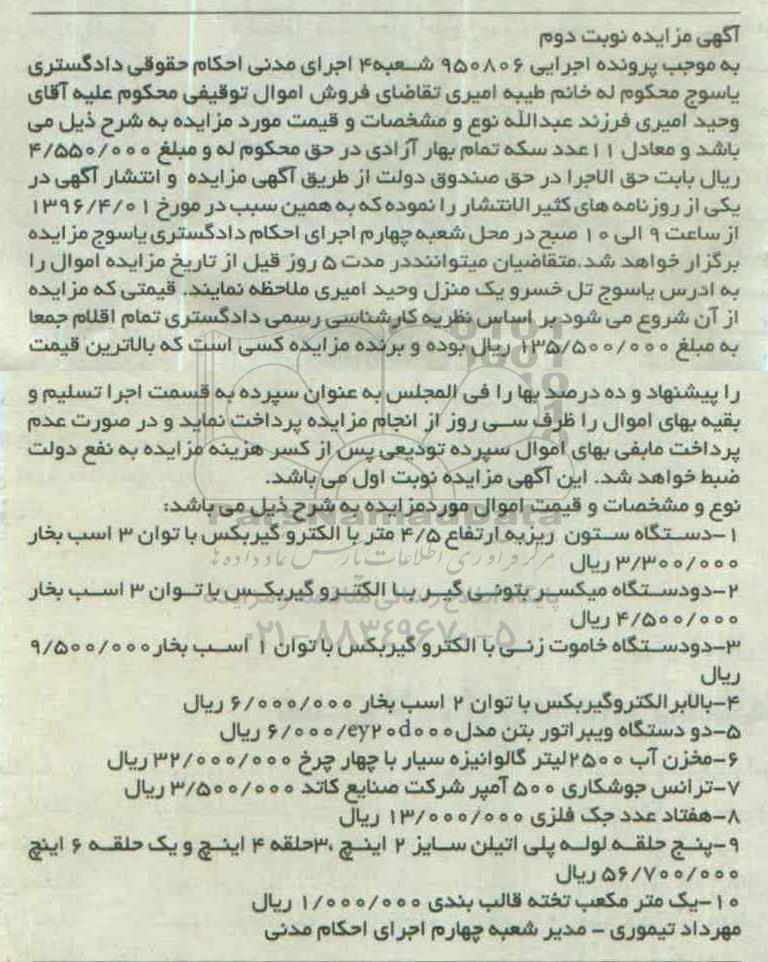 آگهی مزایده نوبت دوم
به موجب پرونده اجرایی ۹۵۰۸۰۶ شعبه۴ اجرای مدنی احکام حقوقی دادگستری
یاسوج محکوم له خانم طیبه امیری تقاضای فروش اموال توقیفی محکوم علیه آقای
وحید امیری فرزند عبدالله نوع و مشخصات و قیمت مورد مزایده به شرح ذیل می
باشد و معادل ۱۱عدد سکه تمام بهار آزادی در حق محکوم له و مبلغ ۴/۵۵۰/۰۰۰
ریال بابت حق الاجرا در حق صندوق دولت از طریق آگهی مزایده و انتشار آگهی در
یکی از روزنامه های کثیرالانتشار را نموده که به همین سبب در مورخ ۱۳۹۶/۴/۰۱
از ساعت ۹ الی ۱۰ صبح در محل شعبه چهارم اجرای احکام دادگستری یاسوج مزایده
برگزار خواهد شد.متقاضیان میتواننددر مدت ۵ روز قبل از تاریخ مزایده اموال را
به ادرس یاسوج تل خسرو یک منزل وحید امیری ملاحظه نمایند. قیمتی که مزایده
از آن شروع می شود بر اساس نظریه کارشناسی رسمی دادگستری تمام اقلام جمعا
به مبلغ ۱۳۵/۵۰۰/۰۰۰ ریال بوده و برنده مزایده کسی است که بالاترین قیمت
را پیشنهاد و ده درصد بها را فی المجلس به عنوان سپرده به قسمت اجرا تسلیم و
بقیه بهای اموال را ظرف سی روز از انجام مزایده پرداخت نماید و در صورت عدم
پرداخت مابقی بهای اموال سپرده تودیعی پس از کسر هزینه مزایده به نفع دولت
ضبط خواهد شد. این آگهی مزایده نوبت اول می باشد.
نوع و مشخصات و قیمت اموال موردمزایده به شرح ذیل می باشد:
۱-دستگاه ستون ریزبه ارتفاع ۴/۵ متر با الکترو گیربکس با توان ۳ اسب بخار
۳/۳۰۰/۰۰۰ ریال
۲-دودستگاه میکسر بتونی گیر با الکترو گیربکس با توان ۳ اسب بخار
۴/۵۰۰/۰۰۰ ریال
۳-دودستگاه خاموت زنی با الکترو گیربکس با توان ۱ اسب بخار۹/۵۰۰/۰۰۰
ریال
۴-بالابرالکتروگیربکس با توان ۲ اسب بخار ۶/۰۰۰/۰۰۰ ریال
۵-دو دستگاه ویبراتور بتن مدل۶/۰۰۰/ey۲۰d۰۰۰ ریال
۶-مخزن آب ۲۵۰۰لیتر گالوانیزه سیار با چهار چرخ ۳۲/۰۰۰/۰۰۰ ریال
۷-ترانس جوشکاری ۵۰۰ آمپر شرکت صنایع کاتد ۳/۵۰۰/۰۰۰ ریال
۸-هفتاد عدد جک فلزی ۱۳/۰۰۰/۰۰۰ ریال
۹-پنج حلقه لوله پلی اتیلن سایز ۲ اینچ ،۳حلقه ۴ اینچ و یک حلقه ۶ اینچ
۵۶/۷۰۰/۰۰۰ ریال
۱۰-یک متر مکعب تخته قالب بندی ۱/۰۰۰/۰۰۰ ریال
مهرداد تیموری - مدیر شعبه چهارم اجرای احکام مدنی
ParsNamadData
۰۲۱-۸۸۳۴۹۶۷۰-۵